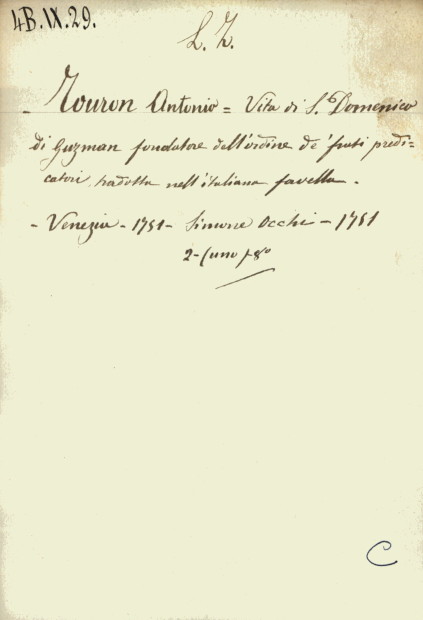 4B.IX.29.
L. Z.
- Touron Antonio = Vita di S.to Domenico
di Guzman fondatore dell'ordine de' frati predi=
catori, tradotta nell'italiana favella.
- Venezia - 1751 - Simone Occhi - 1751
2 - (uno) - 8°
C